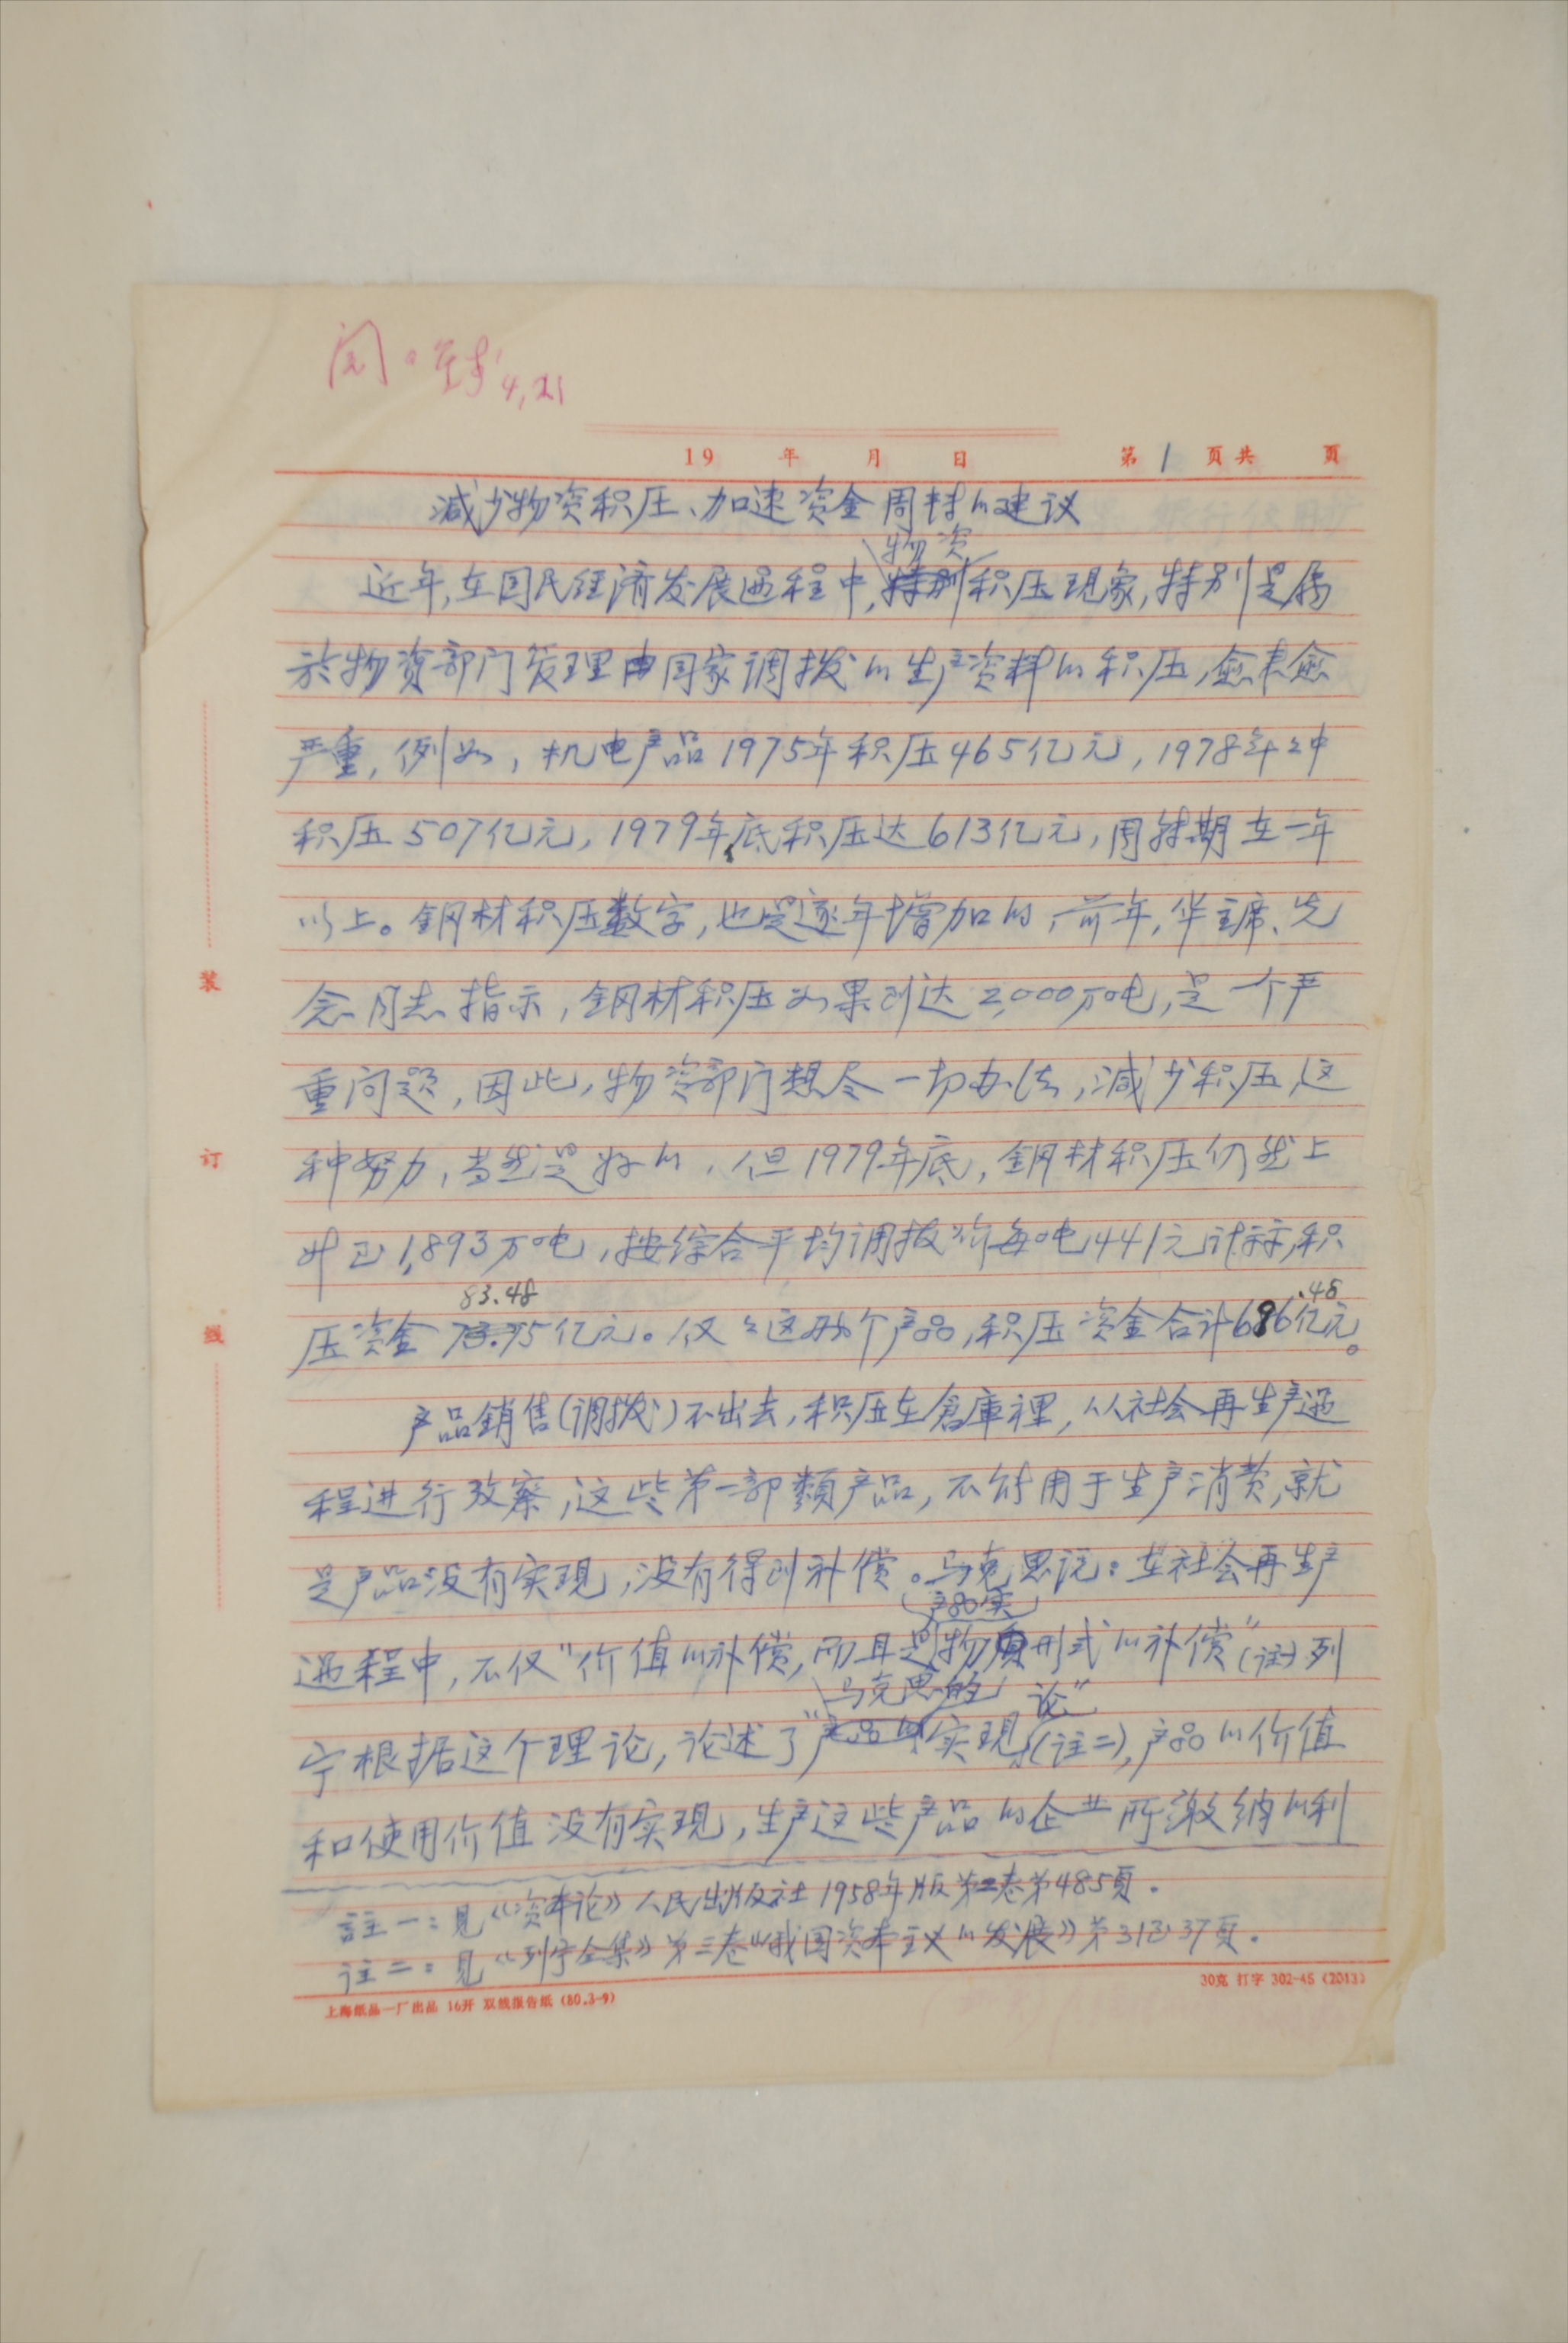 阅。 4,21
19 年 月 日 第1页共 页
减少物资积压、加速资金周转的建议
近年,在国民经济发展过程中,物资积压现象,特别是属
於物资部门管理由国家调拨的生产资料的积压,愈来愈
严重,例如,机电产品1975年积压465亿元,1978年年中
积压507亿元,1979年底积压达613亿元,周转期在一年
以上。钢材积压数字,也是逐年增加的,前年,华主席、先
念同志指示,钢材积压如果到达2,000万吨,是一个严
重问题,因此,物资部门想尽一切办法,减少积压,这
种努力,当然是好的,但1979年底,钢材积压仍然上
升到1,893万吨,按综合平均调拨价每吨441元计算,积
压资金83.48亿元。仅仅这两个产品,积压资金合计696.48亿元。
产品銷售(调拨)不出去,积压在倉庫裡,从社会再生产过
程进行攷察,这些第一部類产品,不能用于生产消费,就
是产品没有实现,没有得到补偿。马克思说:在社会再生产
过程中,不仅"价值的补偿,而且是产品实物形式的补偿"(註)列
宁根据这个理论,论述了"马克思的实现论"(註二),产品的价值
和使用价值没有实现,生产这些产品的企业所缴纳的利
註一:見《资本论》人民出版社1958年版第二卷第485頁.
註二:見《列宁全集》第三卷《俄国资本主义的发展》第31到37頁.
上海纸品一厂出品 16开 双线报告纸 (80.3-9)
30克 打字 302-45 (2013)
装
订
线